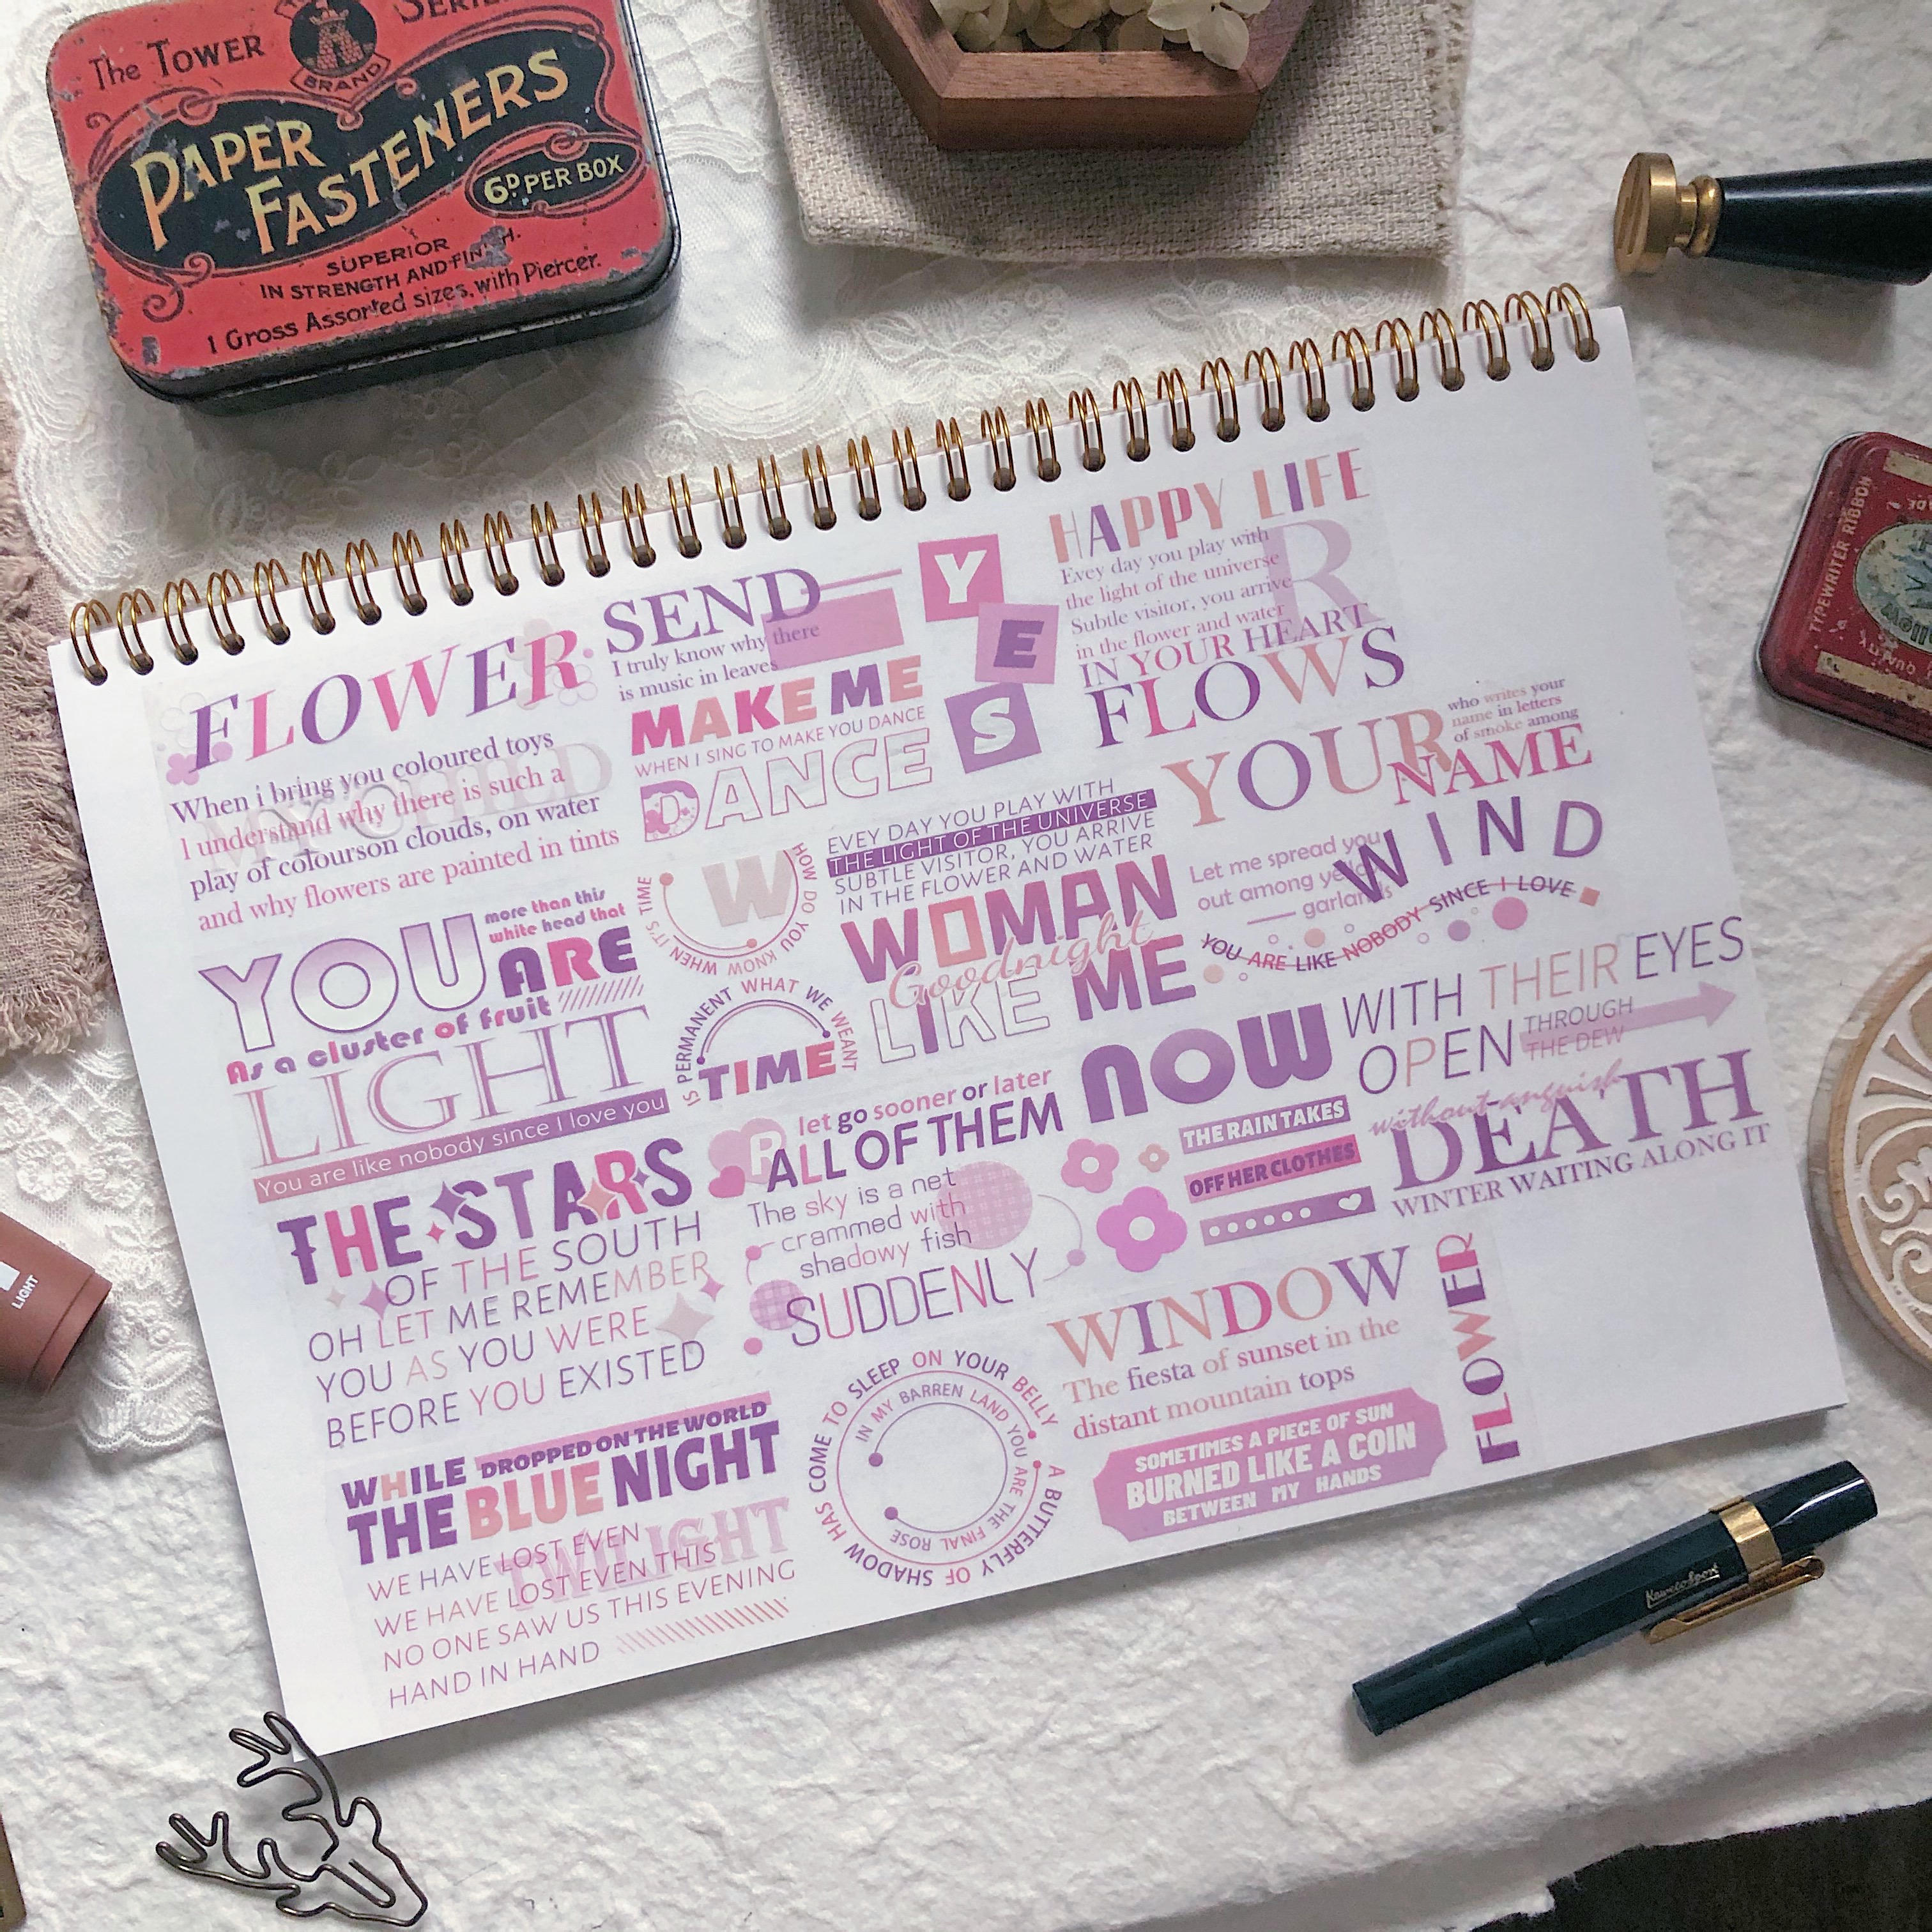 The TOWER
SERIES
BRAND
PAPER
FASTENERS
6D PER BOX
SUPERIOR
IN STRENGTH AND FINISH.
1 Gross Assorted sizes, with Piercer.
TYPEWRITER RIBBON
QUALITY
LIGHT
FLOWER
MY CHILD
When i bring you coloured toys
I understand why there is such a
play of colourson clouds, on water
and why flowers are painted in tints
SEND
I truly know why there
is music in leaves
MAKE ME
WHEN I SING TO MAKE YOU DANCE
DANCE
Y
E
S
HAPPY LIFE
R
Evey day you play with
the light of the universe
Subtle visitor, you arrive
in the flower and water
IN YOUR HEART
FLOWS
YOUR
who writes your
name in letters
of smoke among
NAME
YOU
more than this
white head that
ARE
As a cluster of fruit
LIGHT
You are like nobody since I love you
W
HOW DO YOU KNOW WHEN IT'S TIME
IS PERMANENT WHAT WE WEANT
TIME
EVEY DAY YOU PLAY WITH
THE LIGHT OF THE UNIVERSE
SUBTLE VISITOR, YOU ARRIVE
IN THE FLOWER AND WATER
WOMAN
Goodnight
LIKE ME
WIND
Let me spread you
out among
garlands
YOU ARE LIKE NOBODY SINCE I LOVE
NOW
WITH THEIR EYES
OPEN
THROUGH
THE DEW
THE RAIN TAKES
OFF HER CLOTHES
without anguish
DEATH
WINTER WAITING ALONG IT
THE STARS
OF THE SOUTH
OH LET ME REMEMBER
YOU AS YOU WERE
BEFORE YOU EXISTED
R
let go sooner or later
ALL OF THEM
The sky is a net
crammed with
shadowy fish
SUDDENLY
WINDOW
The fiesta of sunset in the
distant mountain tops
SOMETIMES A PIECE OF SUN
BURNED LIKE A COIN
BETWEEN MY HANDS
FLOWER
WHILE DROPPED ON THE WORLD
THE BLUE NIGHT
TWILIGHT
WE HAVE LOST EVEN
WE HAVE LOST EVEN THIS
NO ONE SAW US THIS EVENING
HAND IN HAND
A BUTTERFLY OF SHADOW HAS COME TO SLEEP ON YOUR BELLY
IN MY BARREN LAND YOU ARE THE FINAL ROSE
Kaweco Sport